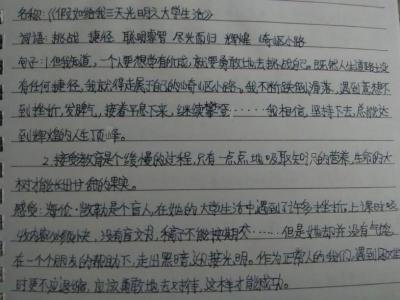 名称:《假如给我三天光明之大学生活》
词语:挑战 捷径 聪明睿智 尽兴而归 辉煌 崎岖小路
句子:1.但我知道,一个人要想学有所成,就要勇敢地去挑战自己。既然人生道路上没
有任何捷径,我就得走属于自己的崎岖小路。我不断跌倒、滑落,遇到意想不
到挫折,发脾气,接着平息下来,继续攀登……我相信,坚持下去,总能达
到辉煌的人生顶峰。
2.接受教育是个缓慢的过程,只有一点点地吸取知识的营养,生命的大
树才能长出甘甜的果实。
感受:海伦·凯勒是个盲人,在她的大学生活中遇到了许多挫折,上课时吸
收内容必须快,没有盲文书,稿子不能按期交……但是她却并没有气馁,
在一个个朋友的帮助下,走出黑暗,迎接光明。作为正常人的我们,遇到困难
时更不应退缩,应该勇敢地去对待,这样才能成功。